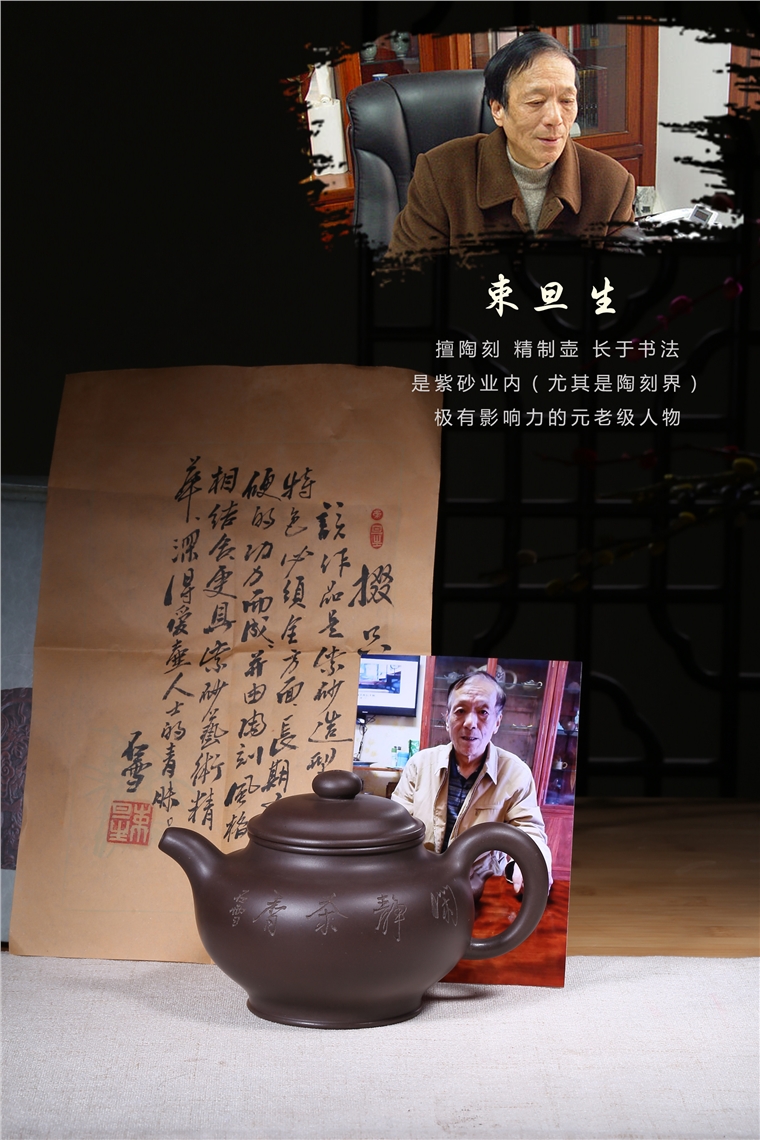 束旦生
擅陶刻 精制壶 长于书法
是紫砂业内（尤其是陶刻界）
极有影响力的元老级人物
掇只
该作品是紫砂造型
特色必须全方面長期
硬的功力而成并由陶刻風格
相结合更具紫砂藝術精
華、深得爱壶人士的青睐。
石雪
静茶香